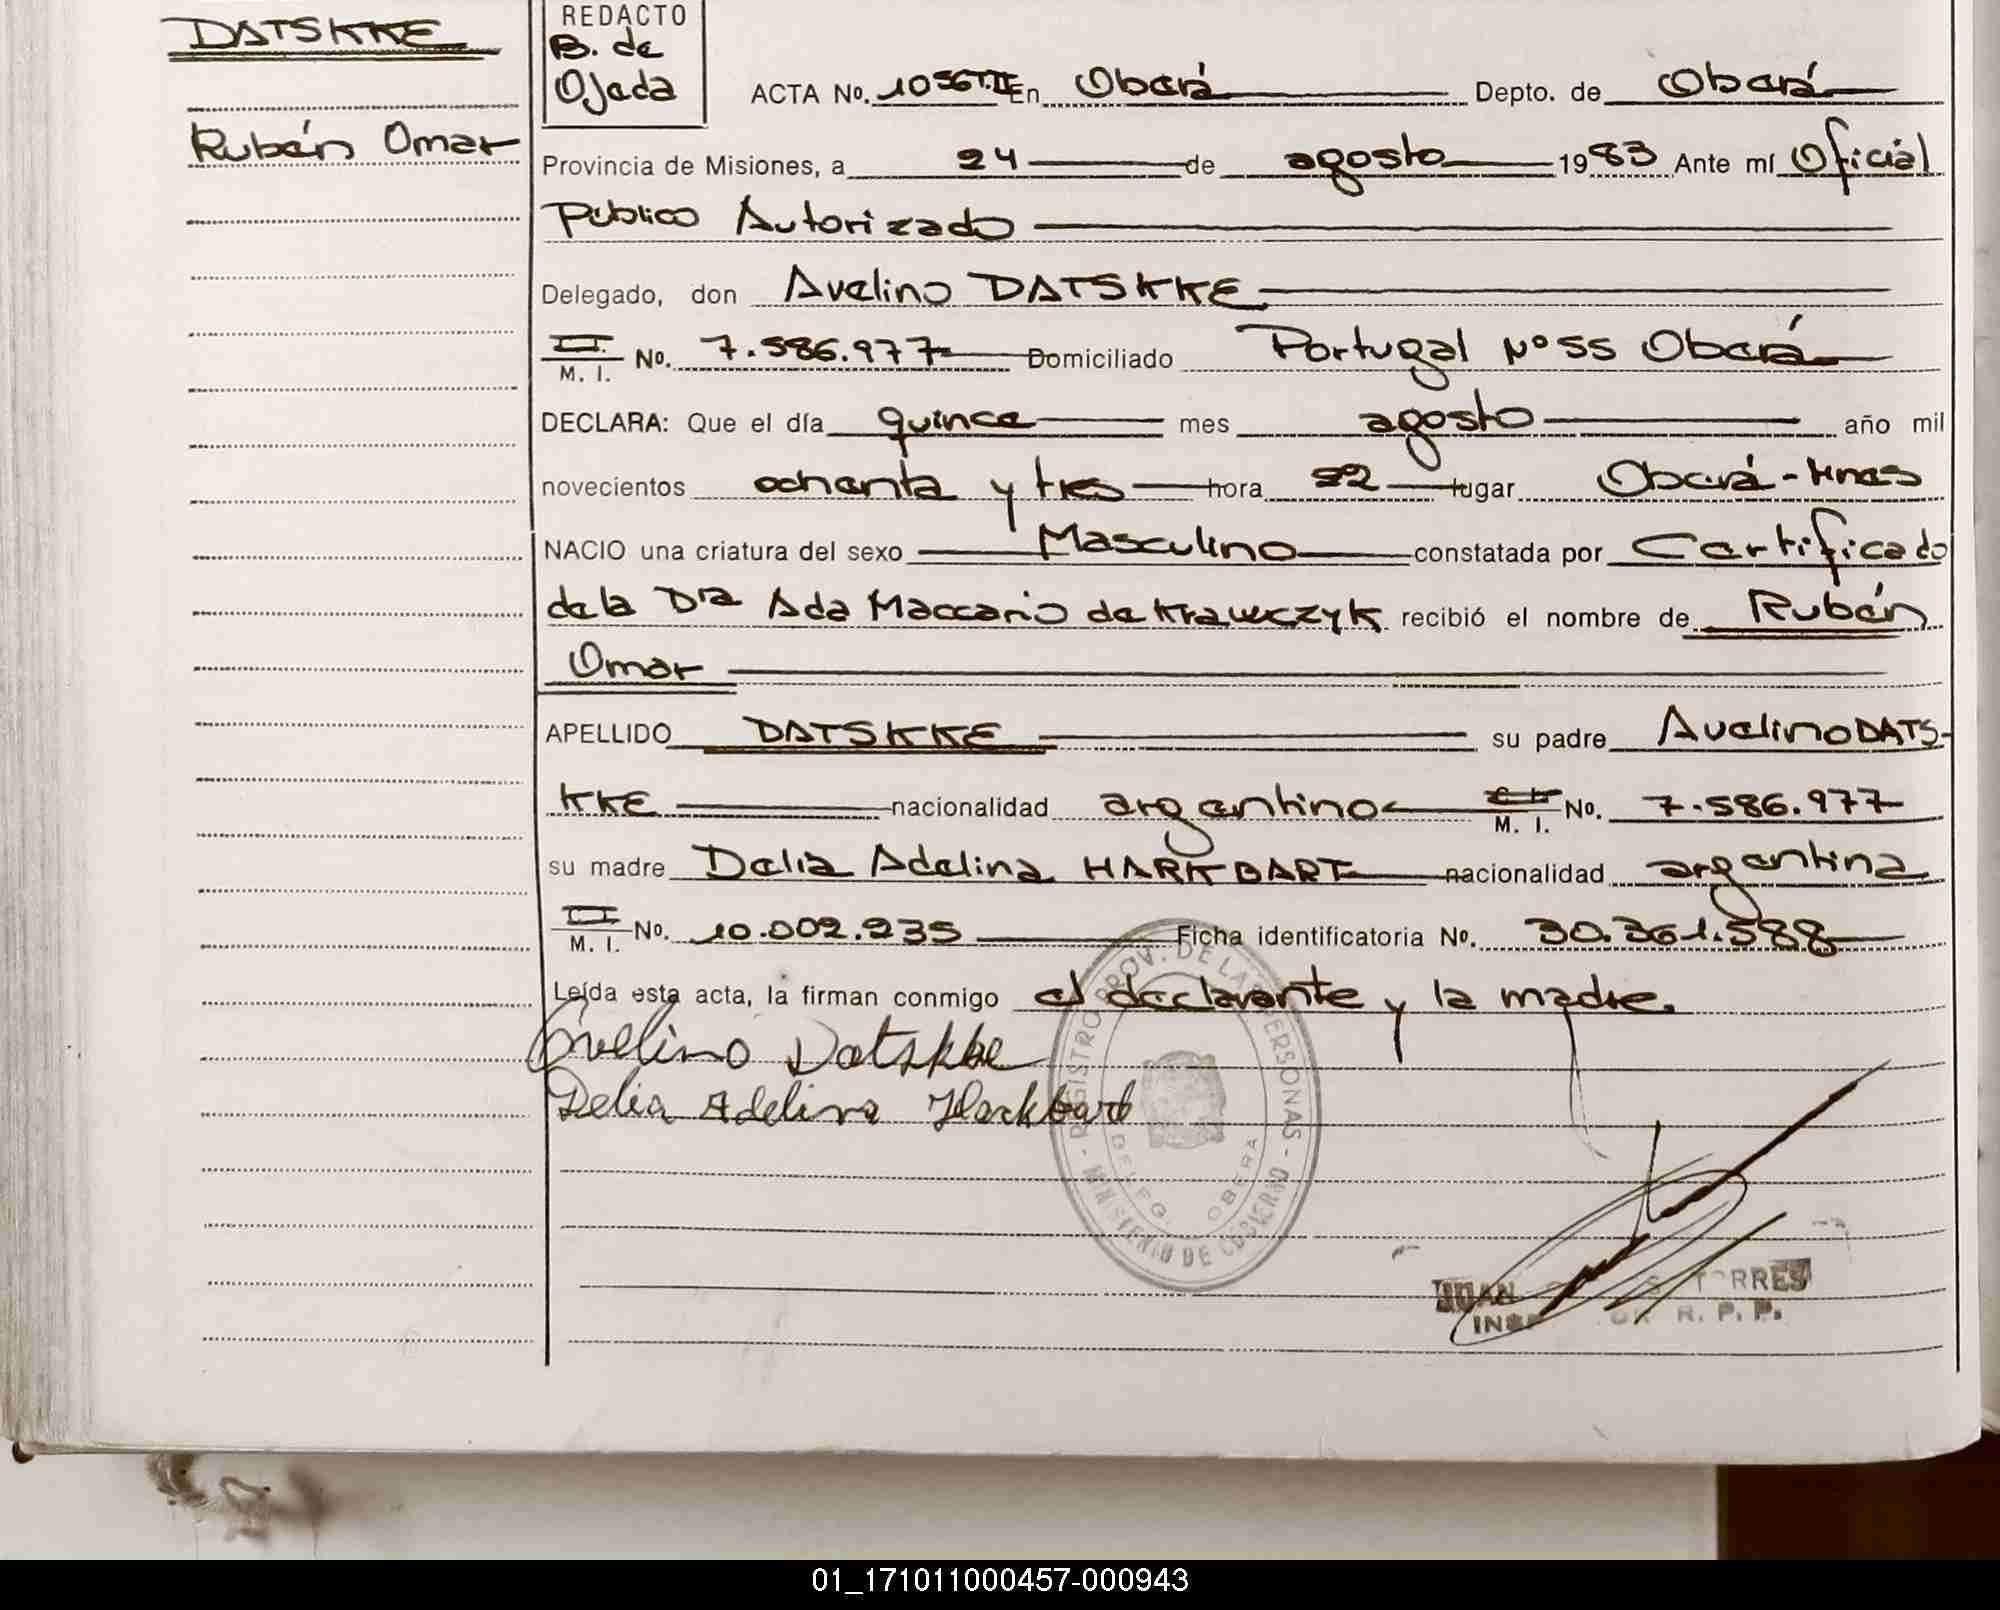 DATSKKE
Rubén Omar
REDACTO
B. de
Ojeda
ACTA No. 1056T.II En Oberá Depto. de Oberá
Provincia de Misiones, a 24 de agosto 1983 Ante mí Oficial
Publico Autorizado
Delegado, don Avelino DATSKKE
M. I. No. 7.586.977 Domiciliado Portugal Nº 55 Oberá
DECLARA: Que el día quince mes agosto año mil
novecientos ochenta y tres hora 22 lugar Oberá - Mnes
NACIO una criatura del sexo Masculino constatada por Certificado
de la Dra Ada Maccario de Krawczyk recibió el nombre de Rubén
Omar
APELLIDO DATSKKE su padre Avelino DATS-
KKE nacionalidad argentino M. I. No. 7.586.977
su madre Delia Adelina HARKBART nacionalidad argentina
M. I. No. 10.002.235 Ficha identificatoria No. 30.361.588
Leída esta acta, la firman conmigo el declarante y la madre.
Avelino Datskke
Delia Adelina Harkbart
REGISTRO PROV. DE LAS PERSONAS - MINISTERIO DE GOBIERNO -
DELEG. OBERA
JUAN TORRES
R. P. P.
01_171011000457-000943